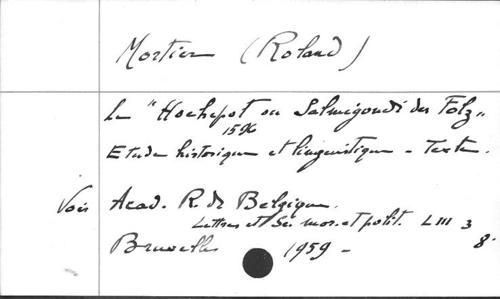 Mortier (Roland)
Le "Hochepot ou Salmigondi des Folz"
1596
Etude historique et linguistique - Texte.
Voir Acad. R. de Belgique.
Lettres et Sci mor. et polit. L III 3
Bruxelles 1959 - 8°